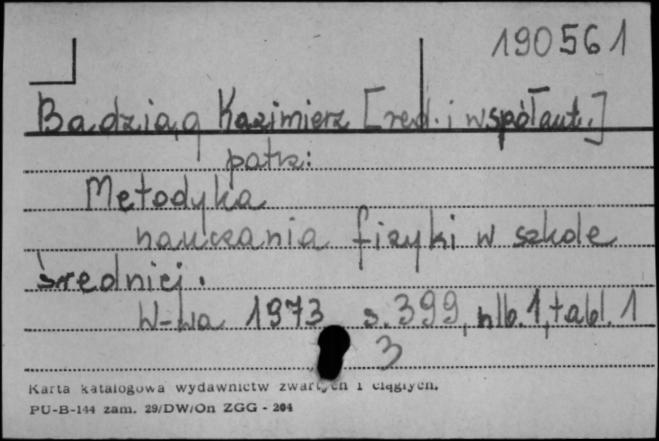 190561
Badziąg Kazimierz [red. i współaut.]
patrz:
Metodyka
nauczania fizyki w szkole
średniej.
W-wa 1973 s. 399, nlb. 1, tabl. 1
3
Karta katalogowa wydawnictw zwartych i ciągłych.
PU-B-144 zam. 29/DW/On ZGG - 204